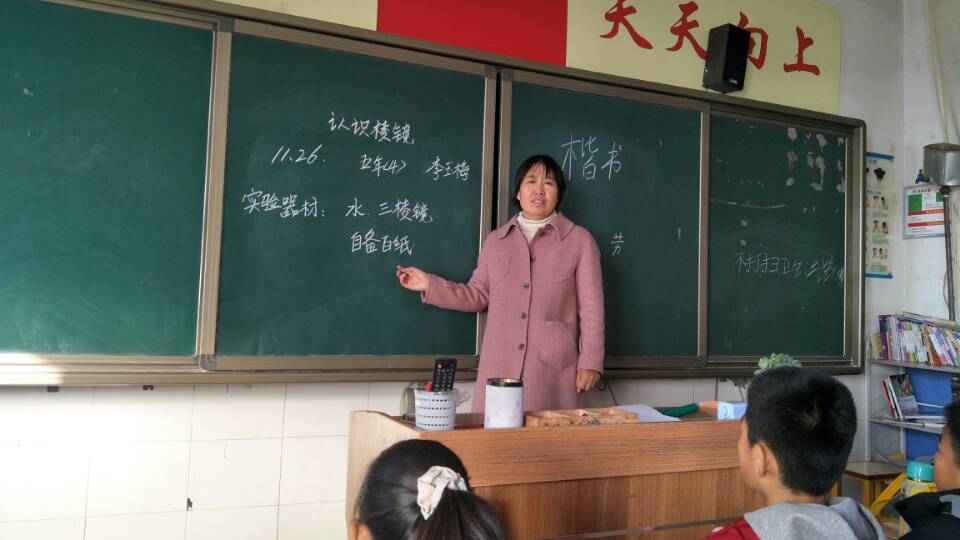 天天向上
认识棱镜
11.26. 五年(4) 李玉梅
实验器材: 水、三棱镜
自备白纸
楷书
劳